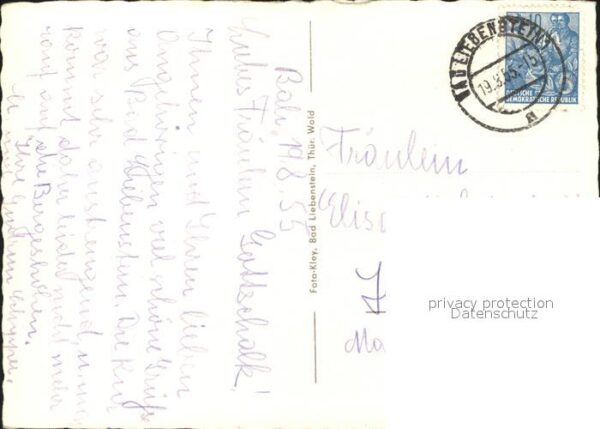 Bali, 19.8.55
Liebes Fräulein Gottschalk!
Ihnen und Ihren lieben
Angehörigen viel schöne Grüße
aus Bad Liebenstein. Die Kur
war sehr anstrengend, u. man
kommt daher leider nicht mehr
rauf auf die Bergeshöhen.
Ihre
Foto-Kley, Bad Liebenstein, Thür. Wald
BAD LIEBENSTEIN
19.8.55
a
10
DEUTSCHE
DEMOKRATISCHE REPUBLIK
Fräulein
Elis
Ma
privacy protection
Datenschutz